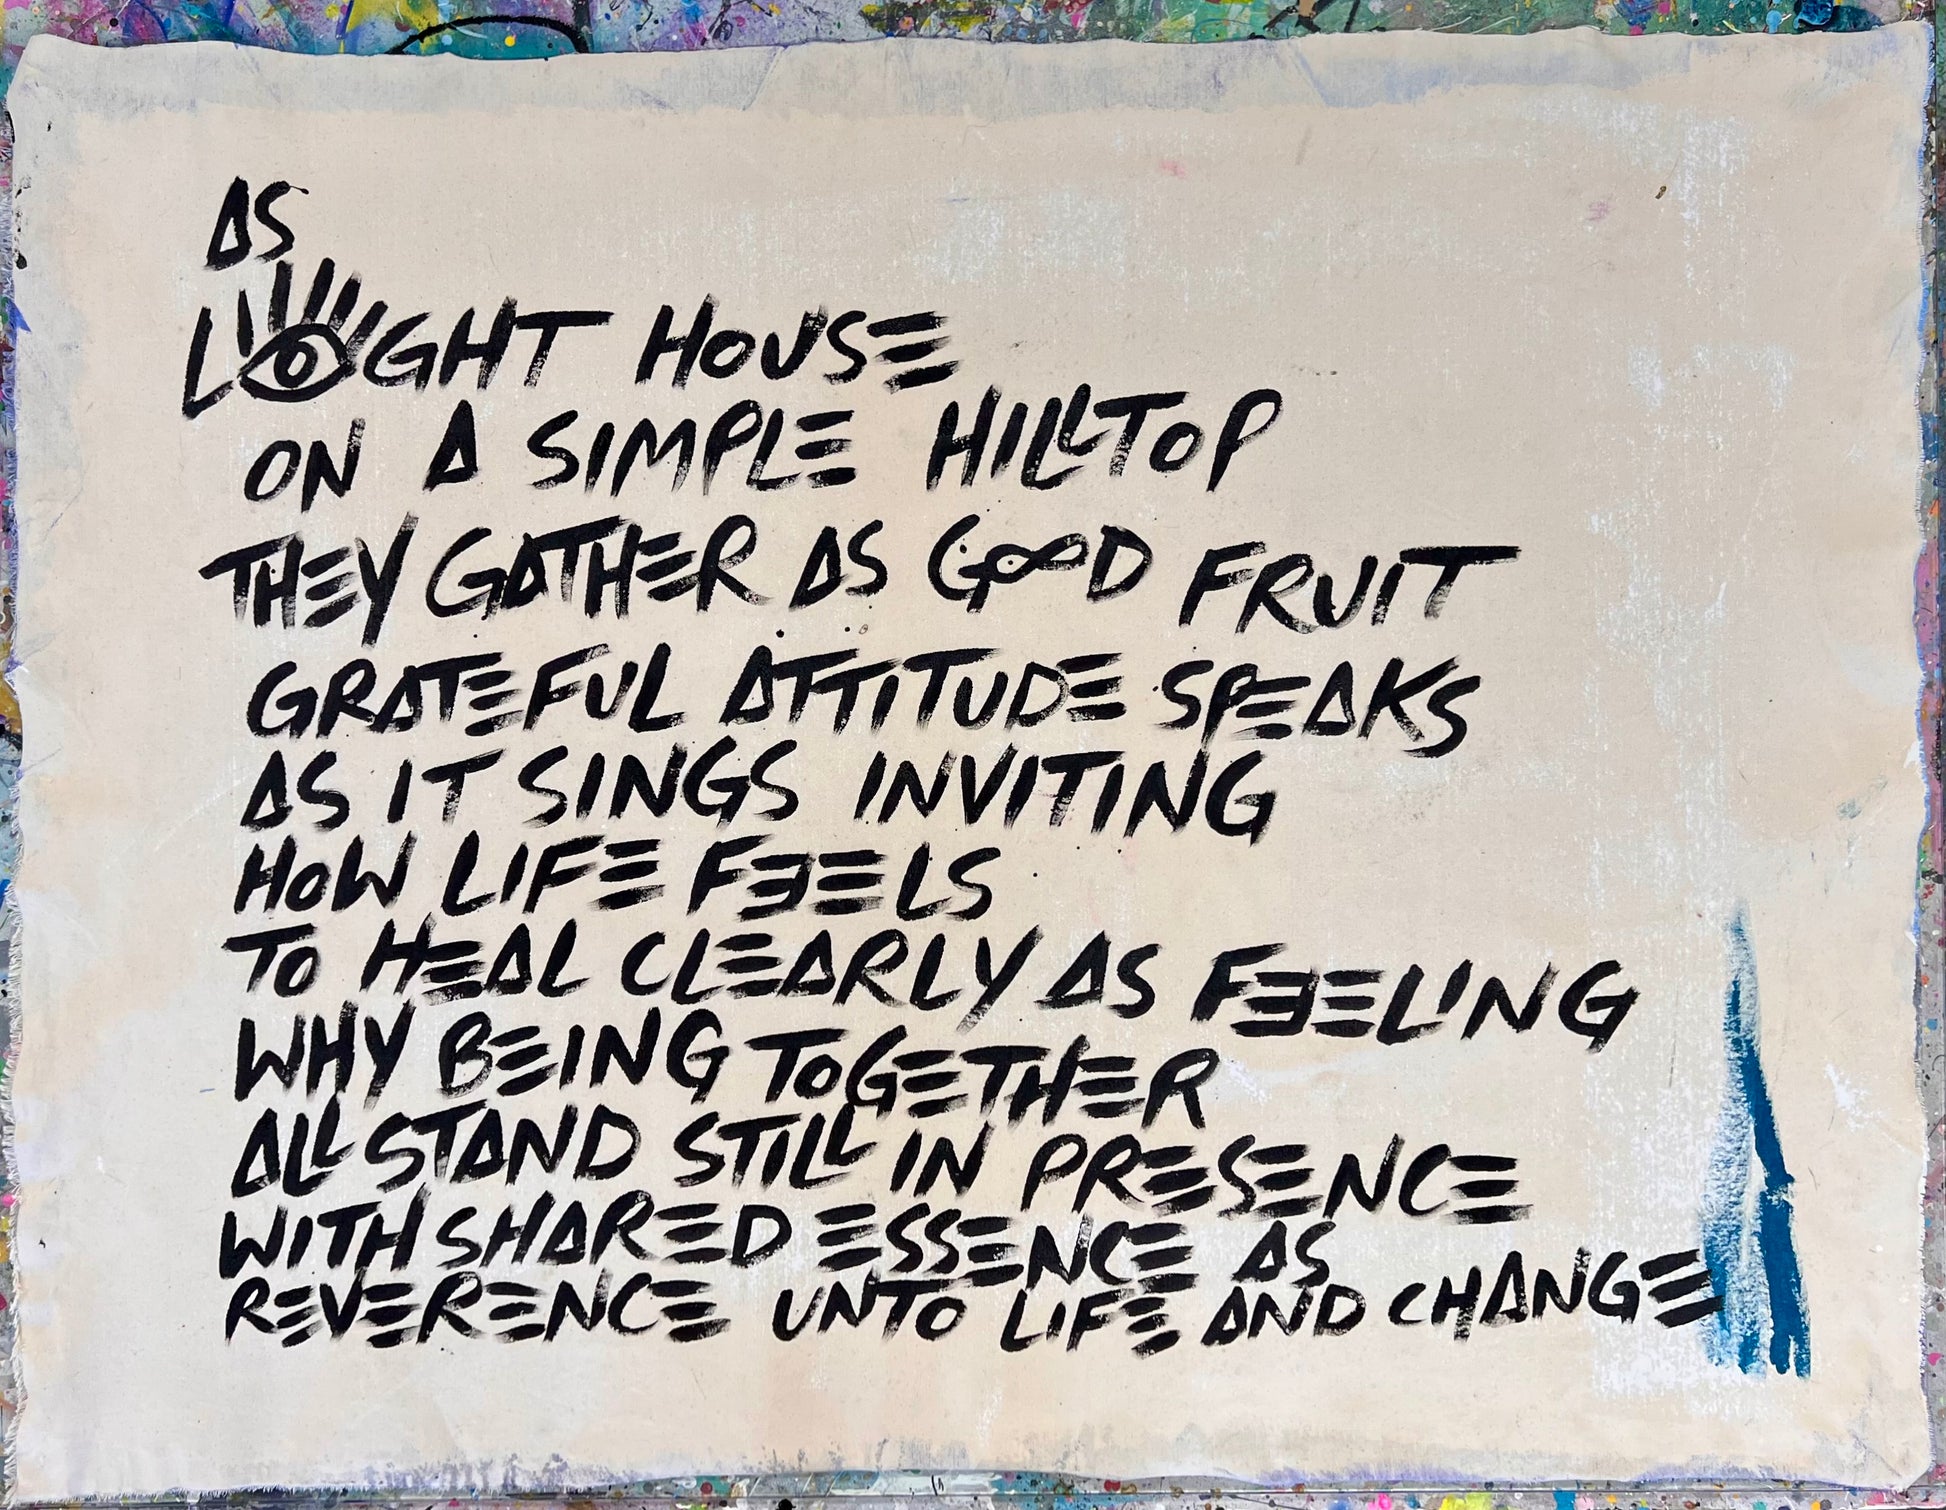 AS
LIGHT HOUSE
ON A SIMPLE HILLTOP
THEY GATHER AS GOOD FRUIT
GRATEFUL ATTITUDE SPEAKS
AS IT SINGS INVITING
HOW LIFE FEELS
TO HEAL CLEARLY AS FEELING
WHY BEING TOGETHER
ALL STAND STILL IN PRESENCE
WITH SHARED ESSENCE AS
REVERENCE UNTO LIFE AND CHANGE